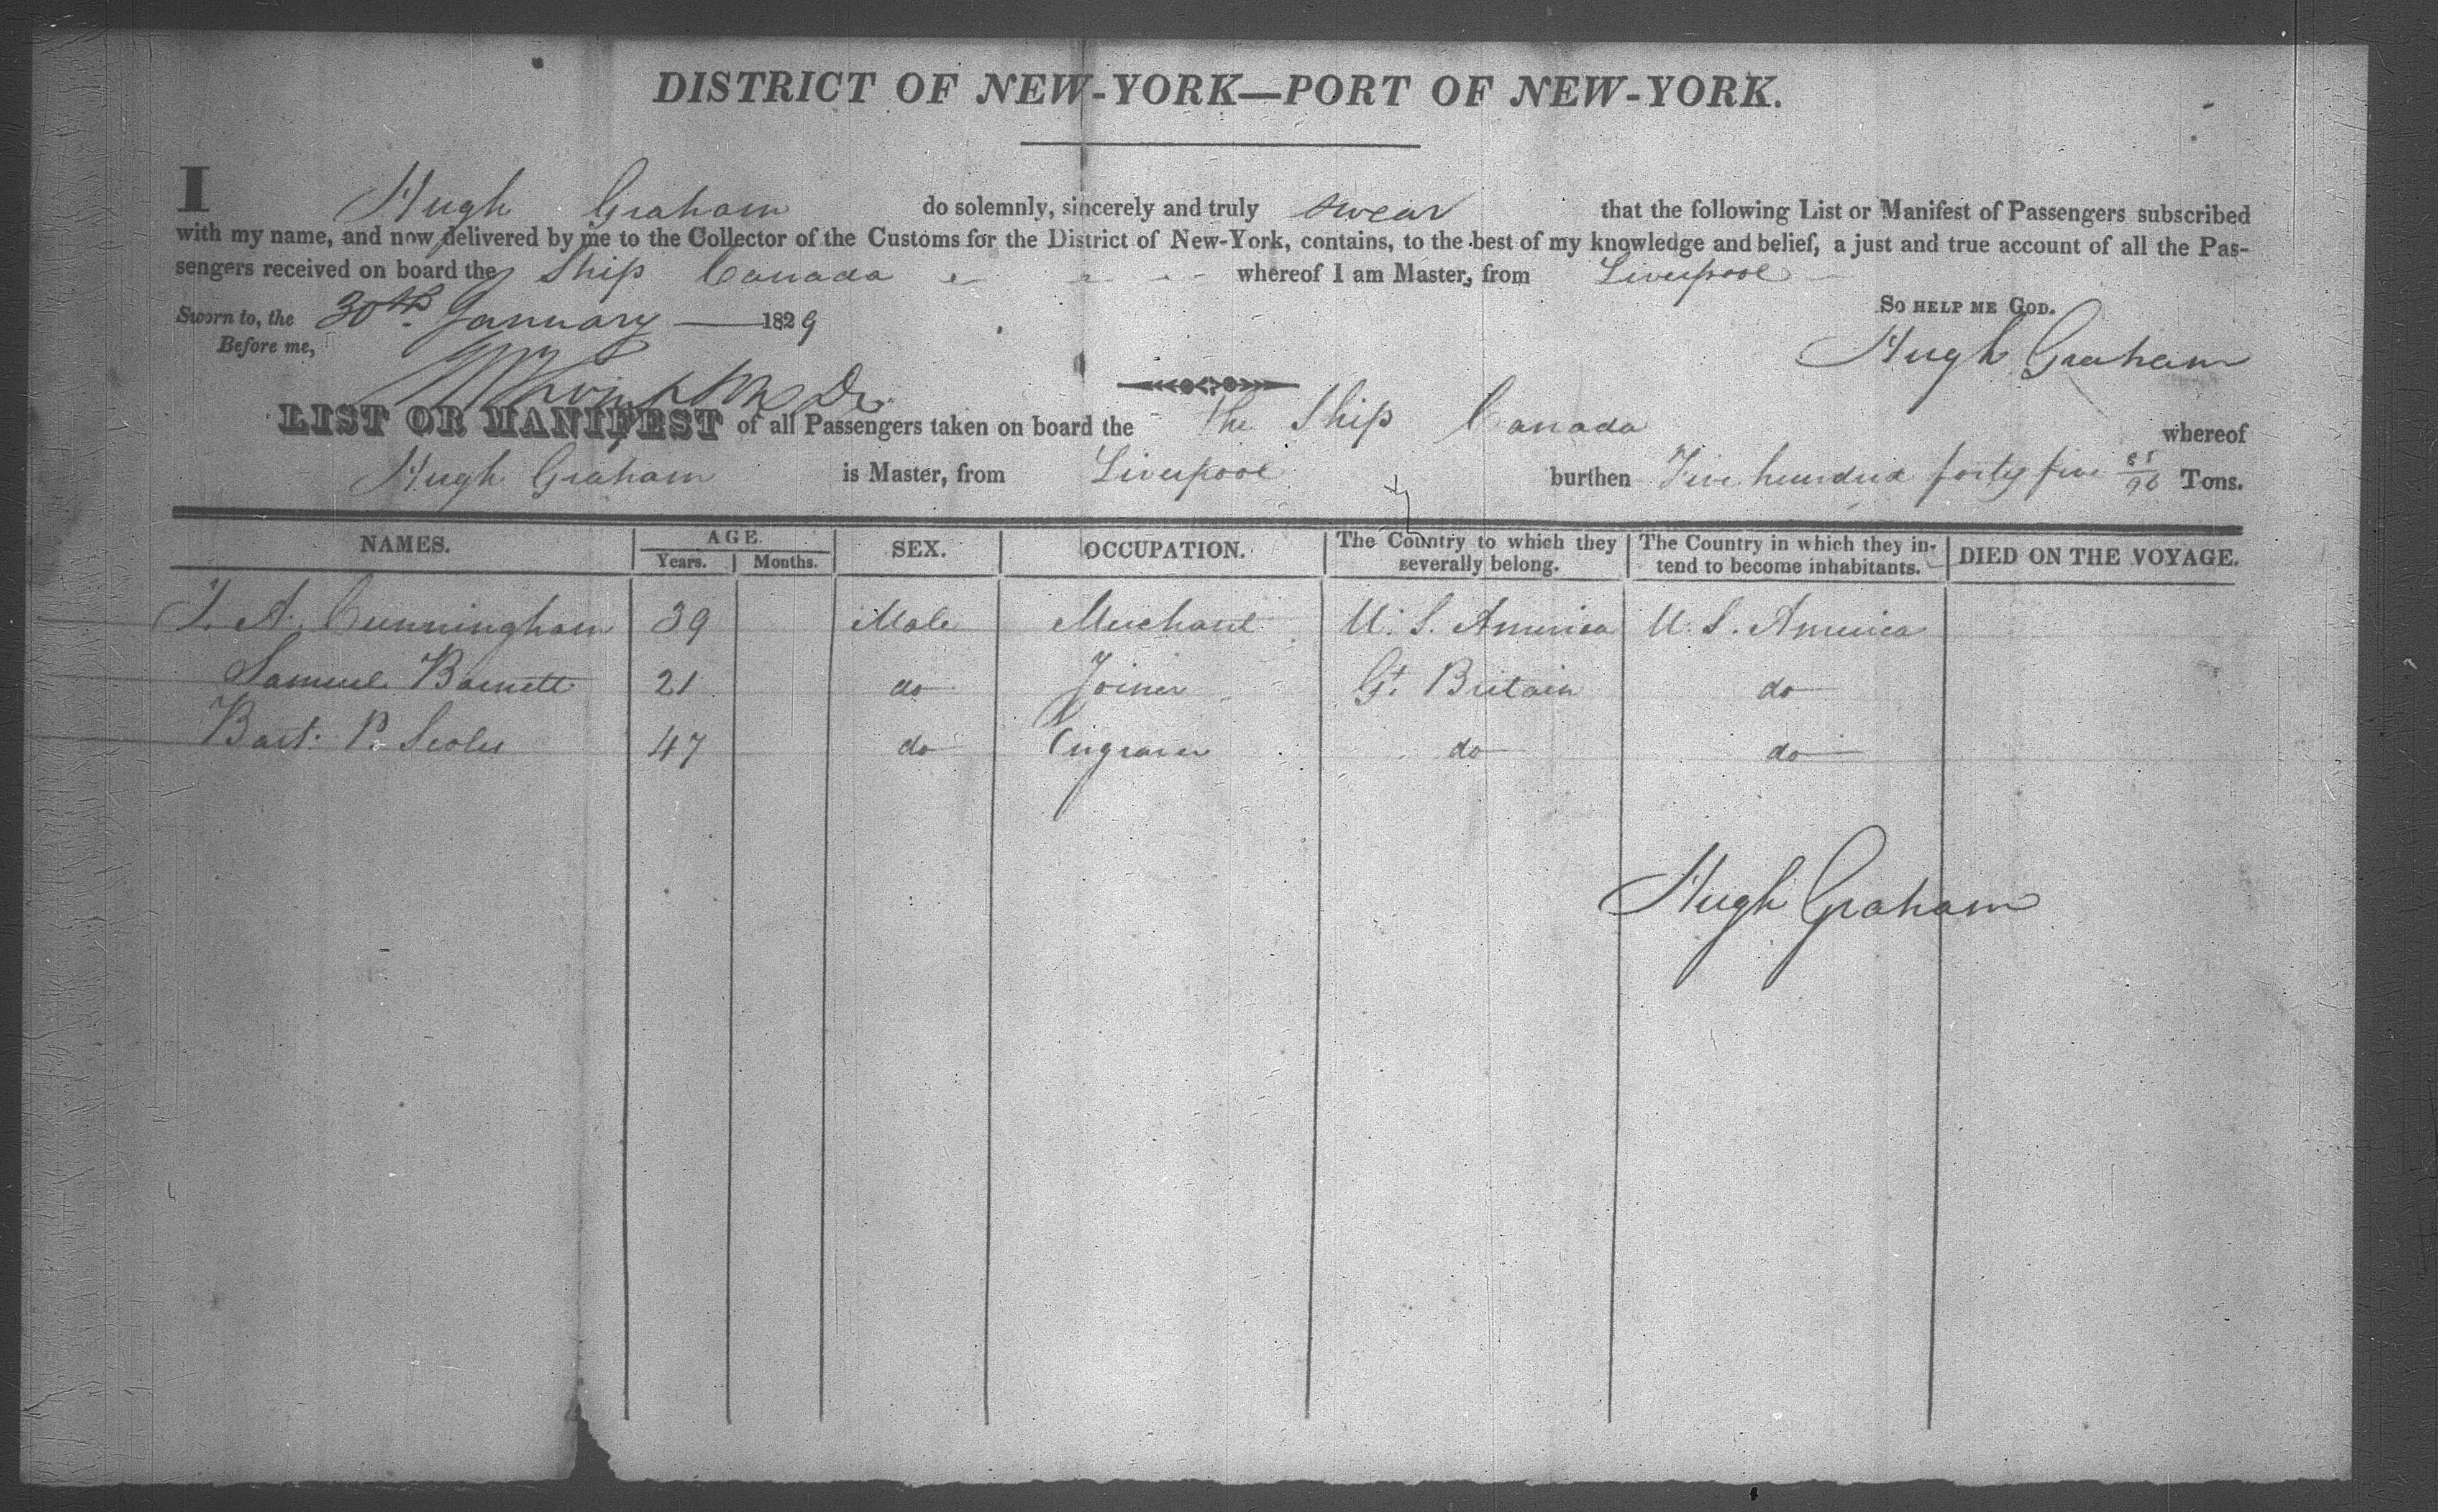 DISTRICT OF NEW-YORK—PORT OF NEW-YORK.
I Hugh Graham do solemnly, sincerely and truly swear that the following List or Manifest of Passengers subscribed
with my name, and now delivered by me to the Collector of the Customs for the District of New-York, contains, to the best of my knowledge and belief, a just and true account of all the Pas-
sengers received on board the Ship Canada whereof I am Master, from Liverpool
Sworn to, the 30th January 1829 SO HELP ME GOD.
Before me, Hugh Graham
LIST OR MANIFEST of all Passengers taken on board the the Ship Canada whereof
Hugh Graham is Master, from Liverpool burthen Five hundred forty five Tons.
NAMES. AGE. SEX. OCCUPATION. The Country to which they severally belong. The Country in which they in-tend to become inhabitants. DIED ON THE VOYAGE.
Years. Months.
A. Cunningham 39 Male Merchant U. S. America U. S. America
Samuel Barnett 21 do Joiner Gt. Britain do
Bart. P. Scoles 47 do Engraver do do
Hugh Graham